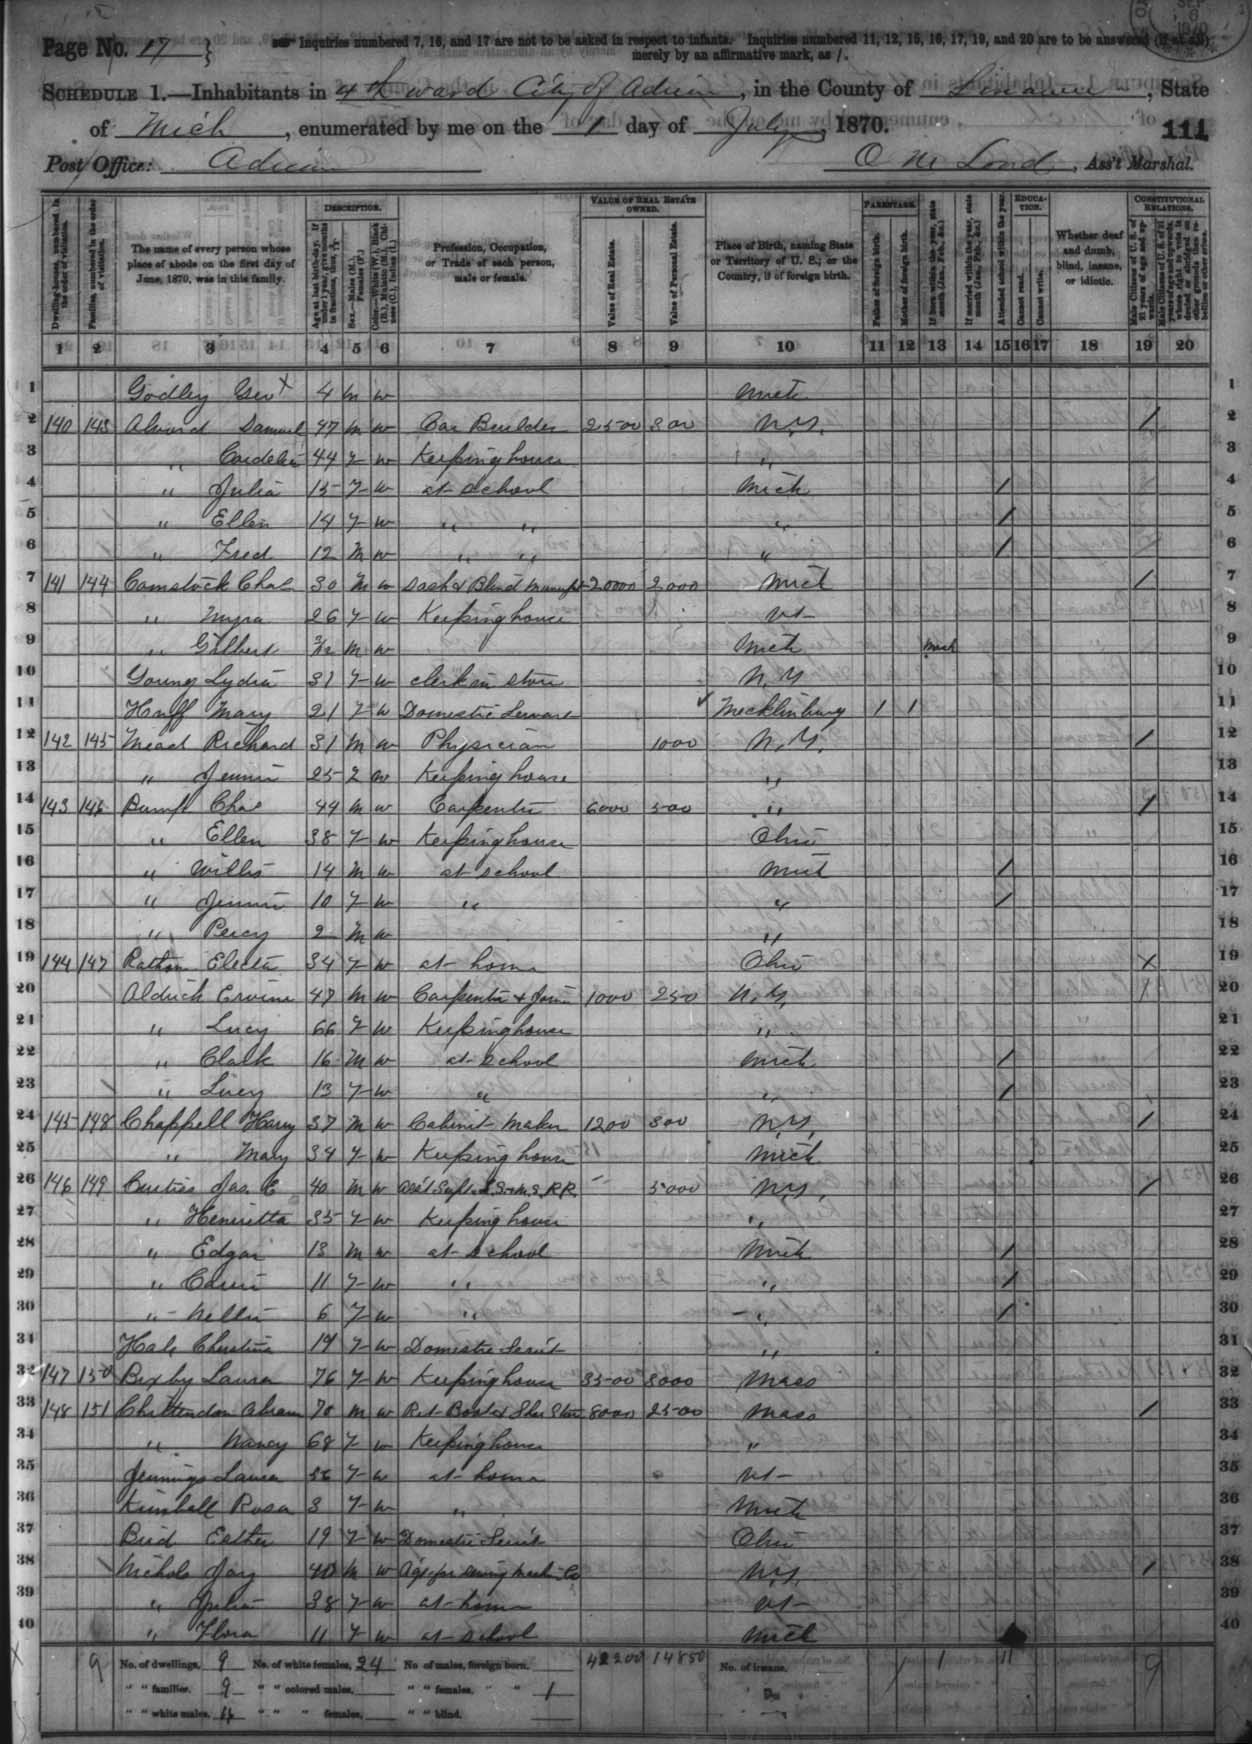 Page No. 17
Inquiries numbered 7, 16, and 17 are not to be asked in respect to infants. Inquiries numbered 11, 12, 15, 16, 17, 19, and 20 are to be answered (if at all) merely by an affirmative mark, as /.
SCHEDULE 1.—Inhabitants in 4th ward City of Adrian, in the County of Lenawee, State
of Mich, enumerated by me on the 1 day of July, 1870. 111
Post Office: Adrian O M Lond, Ass't Marshal.
Dwelling-houses, numbered in the order of visitation. Families, numbered in the order of visitation. The name of every person whose place of abode on the first day of June, 1870, was in this family. DESCRIPTION. Sex.—Males (M.), Females (F.) Profession, Occupation, or Trade of each person, male or female. VALUE OF REAL ESTATE OWNED. Value of Real Estate. Value of Personal Estate. Place of Birth, naming State or Territory of U. S.; or the Country, if of foreign birth. PARENTAGE. Father of foreign birth. Mother of foreign birth. Attended school within the year. EDUCATION. Cannot read. Cannot write. Whether deaf and dumb, blind, insane, or idiotic. CONSTITUTIONAL RELATIONS.
1 2 3 4 5 6 7 8 9 10 11 12 13 14 15 16 17 18 19 20
1 Godley Geo x 4 m w Mich 1
2 140 143 Alvord Samuel 47 m w Car Builder 2500 300 N.Y. / 2
3 " Cordelia 44 f w Keeping house " 3
4 " Julia 15 f w at school Mich / 4
5 " Ellen 14 f w " " " / 5
6 " Fred 12 m w " " " / 6
7 141 144 Comstock Chas 30 m w Sash & Blind Manuft 20000 2000 Mich / 7
8 " Myra 26 f w Keeping house Vt 8
9 " Gilbert 3/12 m w Mich Mch 9
10 Young Lydia 31 f w clerk in store N.Y 10
11 Huff Mary 21 f w Domestic Servant Mecklinburg / / 11
12 142 145 Mead Richard 31 m w Physician 1000 N.Y. / 12
13 " Jennie 25 f w Keeping house " 13
14 143 146 Bump Chas 44 m w Carpenter 6000 500 " / 14
15 " Ellen 38 f w Keeping house Ohio 15
16 " Willis 14 m w at school Mich / 16
17 " Jennie 10 f w " " / 17
18 " Percy 2 m w " 18
19 144 147 Rathbun Electa 34 f w at home Ohio x 19
20 Aldrich Ervine 47 m w Carpenter & Join 1000 250 N.Y. / 20
21 " Lucy 66 f w Keeping house " 21
22 " Clark 16 m w at school Mich / 22
23 " Lucy 13 f w " " / 23
24 145 148 Chappell Harry 37 m w Cabinet Maker 1200 300 N.Y. / 24
25 " Mary 34 f w Keeping house Mich 25
26 146 149 Curtiss Jas. E 40 m w Ass't Supt. L.S.&M.S. R.R. 5000 N.Y. / 26
27 " Henrietta 35 f w Keeping house " 27
28 " Edgar 13 m w at school Mich / 28
29 " Carrie 11 f w " " / 29
30 " Nellie 6 f w " " / 30
31 Hale Christina 19 f w Domestic Serv't " 31
32 147 150 Bixby Laura 76 f w Keeping house 3500 3000 Mass 32
33 148 151 Chittendon Abram 70 m w Ret Boot & Shoe Store 8000 2500 Mass / 33
34 " Nancy 68 f w Keeping house " 34
35 Jennings Laura 36 f w at home Vt 35
36 Kimball Rosa 3 f w " Mich 36
37 Bird Esther 19 f w Domestic Serv't Ohio 37
38 Nichols Jay 40 m w Agt for Sewing Machine Co N.Y. / 38
39 " Julia 38 f w at home Vt 39
40 " Flora 11 f w at school Mich 40
9 No. of dwellings, 9 No. of white females, 24 No. of males, foreign born, 42200 14850 No. of insane, / / 1 11 9
" " families, 9 " " colored males, " " females, " " 1
" " white males, 16 " " " females, " " blind,